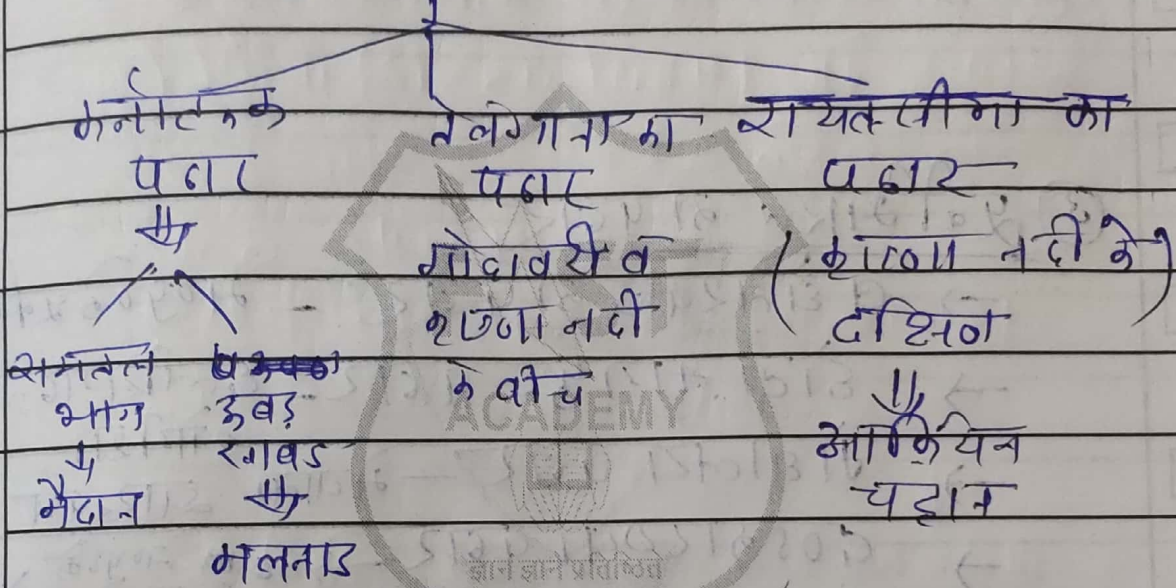 कर्नाटक
पठार
समतल
भाग
मैदान
उबड़
खाबड
मलनाड
तेलंगाना का
पठार
गोदावरी व
कृष्णा नदी
के बीच
रायलसीमा का
पठार
(कृष्णा नदी के
दक्षिण)
आर्कियन
चट्टान
ACADEMY